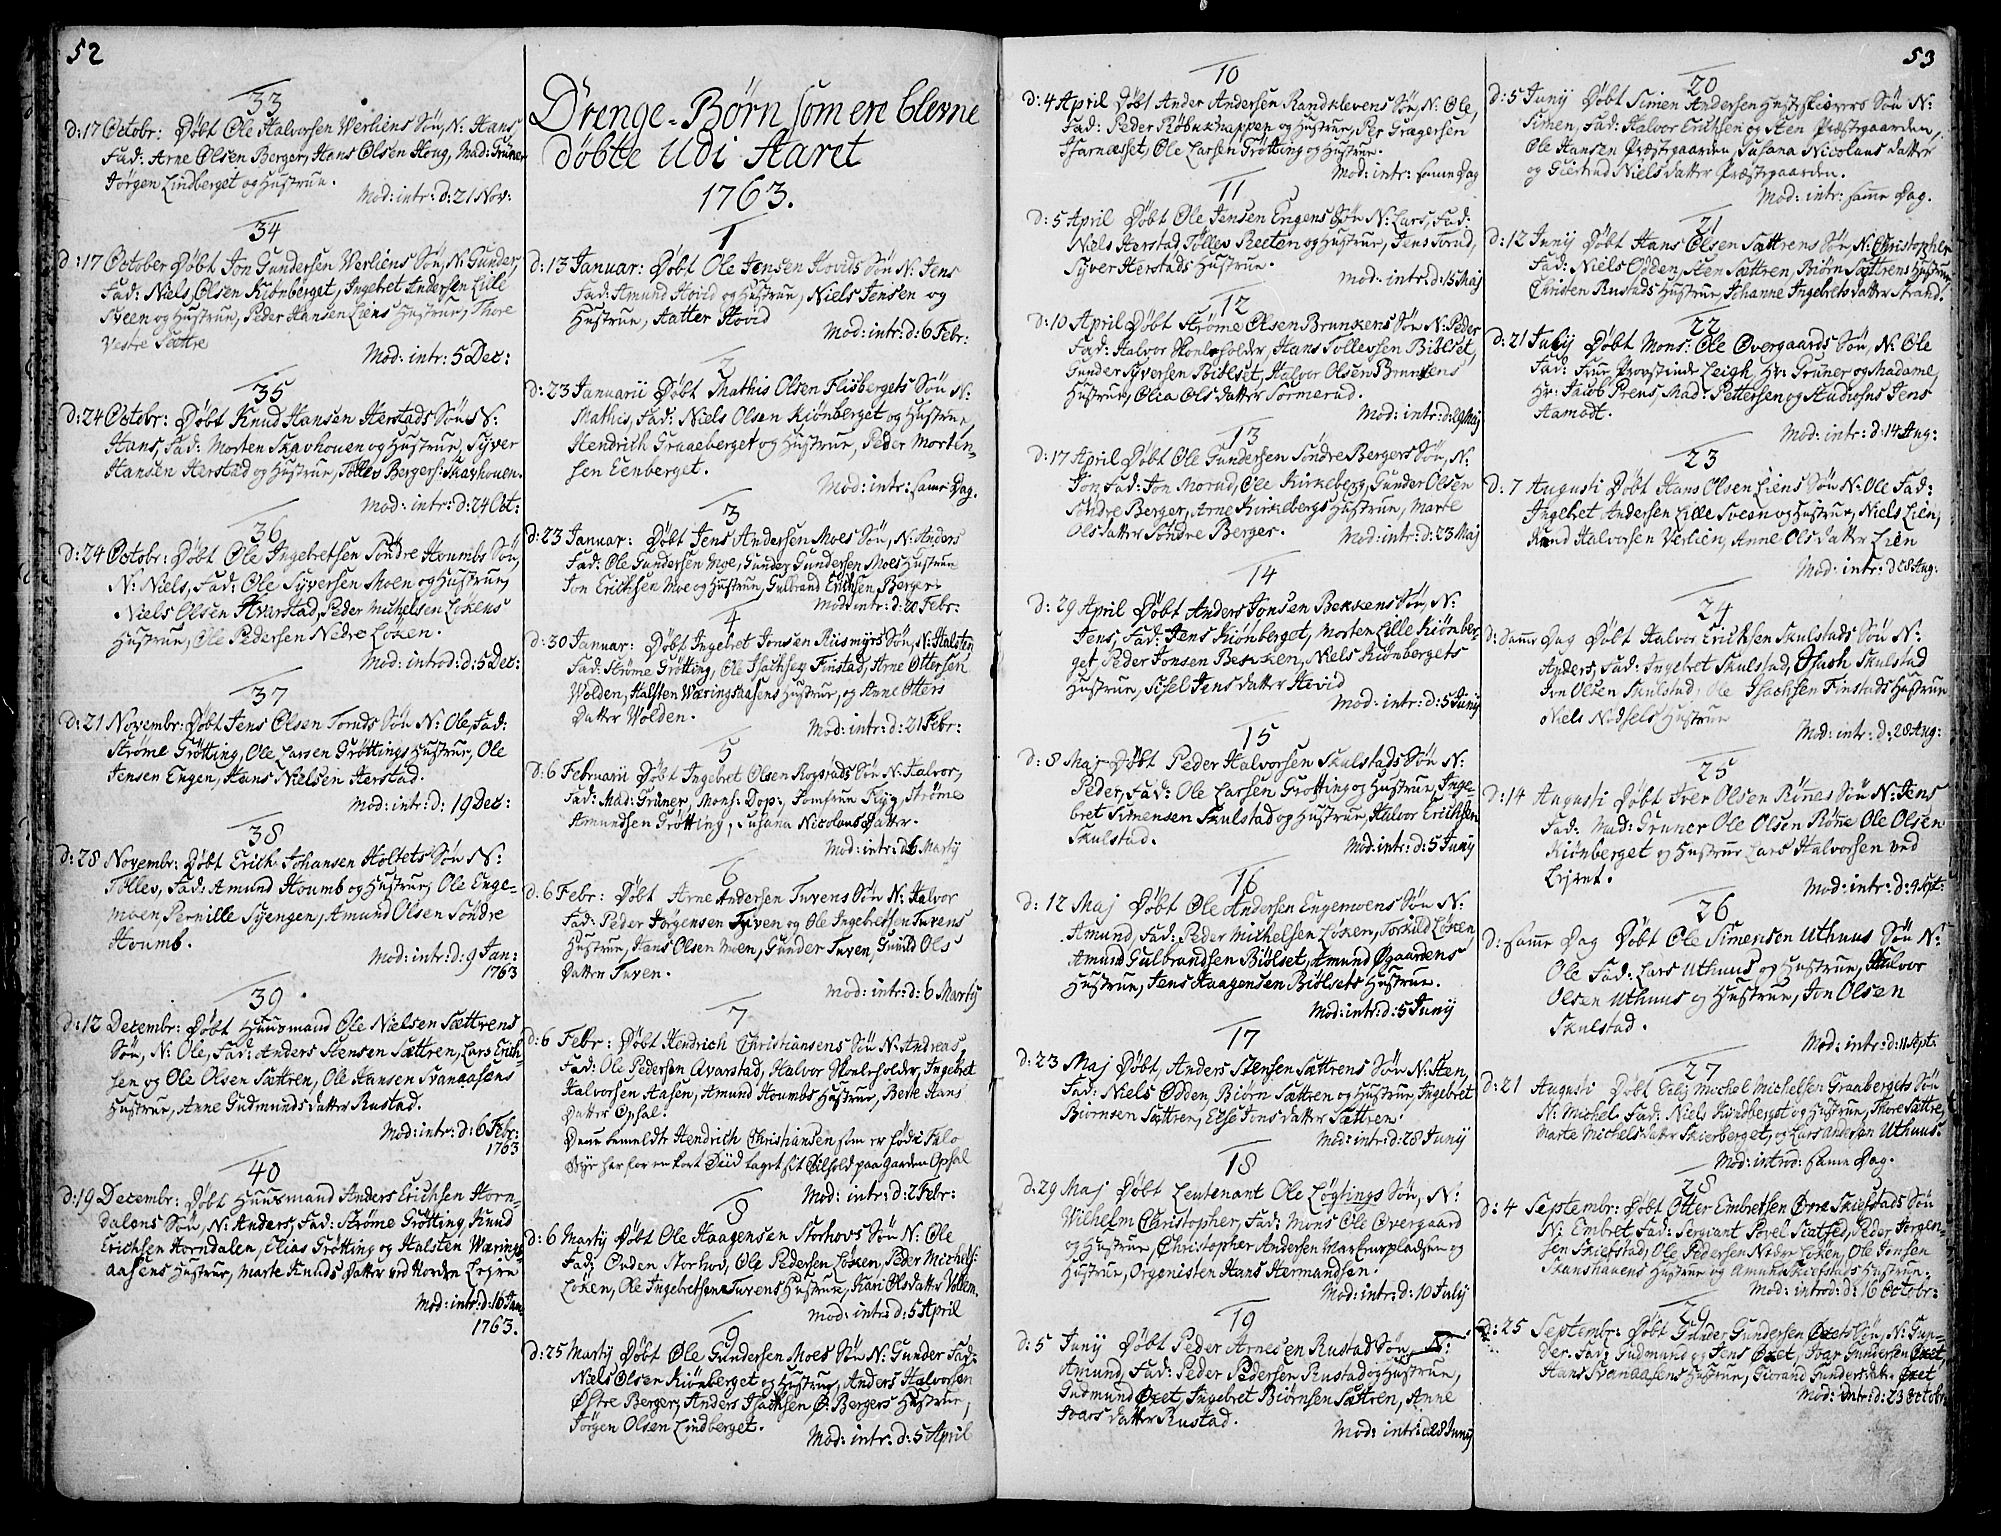 52
33
d: 17 Octobr: Døbt Ole Halvorsen Verliens Søn, N: Hans,
Fad: Arne Olsen Berger, Hans Olsen Houg, Mad: Grüner
Jörgen Lindberget og Hustrue.
Mod: intr: d: 21 Nov:
34
d: 17 October Døbt Jon Gundersen Verliens Søn, N: Gunder,
Fad: Niels Olsen Kiønberget, Ingebret Andersen Lille
Sveen og Hustrue, Peder Hansen Liens Hustrue, Thore
Vestre Sættre
Mod: intr: 5 Dec:
35
d: 24 Octobr: Døbt Knud Hansen Herstads Søn N:
Hans, Fad: Morten Skavhouen og Hustrue, Syver
Hansen Herstad og Hustrue, Tollev Bergers: Skavhouen.
Mod: intr: d: 24 Oct:
36
d: 24 Octobr: Døbt Ole Ingebretsen Söndre Houmbs Søn,
N: Niels, Fad: Ole Syversen Moen og Hustrue,
Niels Olsen Avarstad, Peder Michelsen Løkens
Hustrue, Ole Pedersen Nedre Løken.
Mod: introd: d: 5 Dec:
37
d: 21 Novembr: Døbt Jens Olsen Toruds Søn N: Ole, Fad:
Strøme Grøtting, Ole Larsen Grøttings Hustrue, Ole
Jensen Engen, Hans Nielsen Herstad.
Mod: intr: d: 19 Dec:
38
d: 28 Novembr: Døbt Erich Johansen Holtets Søn N:
Tollev, Fad: Amund Houmb og Hustrue, Ole Enge-
moen, Pernille Syengen, Amund Olsen Söndre
Houmb.
Mod: intr: d: 9 Jan:
1763
39
d: 12 Decembr: Døbt Huusmand Ole Nielsen Sættrens
Søn, N: Ole, Fad: Anders Stensen Sættren, Lars Erich-
sen og Ole Olsen Sættren, Ole Hansen Svanaasens
Hustrue, Anne Gudmunds datter Rustad.
Mod: intr: d: 6 Febr:
1763
40
d: 19 Decembr: Døbt Huusmand Anders Erichsen Horn-
dalens Søn, N: Anders, Fad: Strøme Grøtting, Knud
Erichsen Horndalen, Elias Grøtting og Halsten Wærings-
aasens Hustrue, Marte Knuds Datter ved Norden Lejre
Mod: intr: d: 16 Jan:
1763.
Drenge-Børn som ere blevne
døbte Udi Aaret
1763.
1
d: 13 Januar: Døbt Ole Jensen Hovids Søn N: Jens
Fad: Amund Hovid og Hustrue, Niels Jensen og
Hustrue, Aatter Hovid
Mod: intr: d: 6 Febr:
2
d: 23 Januarii Døbt Mathis Olsen Flisbergets Søn N:
Mathis, Fad: Niels Olsen Kiønberget og Hustrue,
Hendrich Graaeberget og Hustrue, Peder Morten-
sen Eenberget.
Mod: intr: same Dag.
3
d: 23 Januar: Døbt Jens Andersen Moes Søn, N: Anders
Fad: Ole Gundersen Moe, Gunder Gundersen Moes Hustrue
Jon Erichsen Moe og Hustrue, Gulbrand Erichsen Berger
Mod: intr: d: 20 Febr:
4
d: 30 Januar: Døbt Ingebret Jonsen Riismyrs Søn, N: Halsten
Fad: Strøme Grøtting, Ole Isachsen Finstad, Arne Ottersen
Wolden, Halsten Wæringsaasens Hustrue, og Anne Otters
Datter Wolden.
Mod: intr: d: 21 Febr:
5
d: 6 Februarii Døbt Ingebret Olsen Rogstads Søn N: Halvor,
Fad: Mad: Grüner, Mons: Dop:, Jomfrue Flyg, Strøme
Amundsen Grøtting, Susana Nicolaus Datter.
Mod: intr: d 6 Marty
6
d: 6 Febr: Døbt Arne Andersen Tuvens Søn N: Halvor
Fad: Peder Jörgensen Tuven og Ole Ingebretsen Tuvens
Hustrue, Hans Olsen Moen, Gunder Tuven, Gunild Ols
Datter Tuven.
Mod: intr: d: 6 Marty
7
d: 6 Febr: Døbt Hendrich Christiansens Søn N: Andreas,
Fad: Ole Pedersen Avarstad, Halvor Skoeleholder, Ingebret
Halvorsen Aasen, Amund Houmbs Hustrue, Berte Hans
Datter Opsal.
Dene bemeldte Hendrich Christiansen som er fød i Falo
Skye har for en kort Tiid taget sit Tilhold paa Garden Opsal
Mod: intr: d: 2 Febr:
8
d: 6 Marty Døbt Ole Haagensen Storhovs Søn N: Ole
Fad: Ouden Storhov, Ole Pedersen Løken, Peder Michels:
Løken, Ole Ingebretsen Tuvens Hustrue, Kari Olsdatter Vollem.
Mod: intr: d: 5 April
9
d: 25 Marty Døbt Ole Gundersen Moes Søn N: Gunder Fad:
Niels Olsen Kiønberget og Hustrue, Anders Halvorsen
Østre Berger, Anders Isachsen Ø: Bergers Hustrue,
Jörgen Olsen Lindberget.
Mod: intr: d: 5 April
10
d: 4 April Døbt Ander Andersen Randklevens Søn, N: Ole,
Fad: Peder Röbuknappen og Hustrue, Per Gragersen
Hiarnæset, Ole Larsen Grøtting og Hustrue.
Mod: intr: samme Dag
11
d: 5 April Døbt Ole Jensen Engens Søn N: Lars, Fad:
Niels Herstad Tollev Reeten og Hustrue, Jens Torud,
Syver Herstads Hustrue.
Mod: intr: d: 15 Maj
12
d: 10 April Døbt Strøme Olsen Brunkens Søn N: Peder
Fad: Halvor Skoeleholder, Hans Tollevsen Biölset,
Gunder Syversen Biölset, Halvor Olsen Brunkens
Hustrue, Olia Ols datter Sormerud.
Mod: intr: d: 29 Maj
13
d: 17 April Døbt Ole Gundersen Søndre Bergers Søn, N:
Jon Fad: Jon Morud, Ole Kirkeberg, Gunder Olsen
Søndre Berger, Arne Kirkebergs Hustrue, Marte
Ols datter Søndre Berger.
Mod: intr: d: 23 Maj
14
d: 29 April Døbt Anders Jonsen Bekkens Søn, N:
Jens, Fad: Jens Kiønberget, Morten Lille Kiønber-
get Peder Jonsen Bekken, Niels Kiønbergets
Hustrue, Sisel Jens datter Hovid
Mod: intr: d: 5 Juny
15
d: 8 Maj Døbt Peder Halvorsen Skulstads Søn N:
Peder, Fad: Ole Larsen Grøtting og Hustrue, Inge-
bret Simensen Skulstad og Hustrue, Halvor Erichsen
Skulstad.
Mod: intr: d: 5 Juny
16
d: 12 Maj Døbt Ole Andersen Engemoens Søn N:
Amund, Fad: Peder Michelsen Løken, Torkild Løken
Amund Gulbrandsen Biölset, Amund Øgaardens
Hustrue, Jens Haagensen Biölsets Hustrue.
Mod: intr: d: 5 Juny
17
d: 23 Maj Døbt, Anders Stensen Sættrens Søn N: Sten,
Fad: Niels Odden, Biørn Sættren og Hustrue, Ingebret
Biørnsen Sættren, Else Jons datter Sættren.
Mod: intr: d: 28 Juny
18
d: 29 Maj Døbt Leutenant Ole Løgtings Søn, N:
Wilhelm Christopher, Fad: Mons Ole Overgaard
og Hustrue, Christopher Andersen Warkeurpladsen og
Hustrue, Orgenisten Hans Hermandsen.
Mod: intr: d: 10 July
19
d: 5 Juny Døbt Peder Arnesen Rustad Søn, N:
Amund, Fad: Peder Pedersen Rustad og Hustrue,
Gudmund Øxet, Ingebret Biørnsen Sættren, Anne
Ivars datter Rustad.
Mod: intr: d: 28 Juny
53
20
d: 5 Juny Døbt Simen Andersen Hest skioeres Søn N:
Simen, Fad: Halvor Erichsen og Sten Præstegaarden,
Ole Hansen Præstgaarden, Susana Nicolaus datter
og Giertrud Niels datter Præstgaarden.
Mod: intr: samme Dag.
21
d: 12 Juny Døbt Hans Olsen Sættrens Søn, N: Christopher
Fad: Niels Odden, Sten Sættren, Biørn Sættrens Hustrue
Christen Rustads Hustrue, Johanne Ingebrets datter Strand.
22
d: 21 July Døbt Mons: Ole Overgaards Søn, N: Ole
Fad: Frue Provstinde Leigh, Hr: Grüner og Madame,
Hr: Jacob Prens, Mad: Pettersen og Studiosus Jens
Aamodt.
Mod: intr: d: 14 Aug:
23
d: 7 Augusti Døbt Hans Olsen Liens Søn N: Ole Fad:
Ingebret Andersen Lille Sveen og Hustrue, Niels Lien,
Knud Halvorsen Verlien, Anne Ols datter Lien
Mod: intr: d 28 Aug:
24
d: Same Dag Døbt Halvor Erichsen Skulstads Søn N:
Anders, Fad: Ingebret Skulstad, Isach Skulstad
Jon Olsen Skulstad, Ole Isachsen Finstads Hustrue
Niels Nedsels Hustrue
Mod: intr: d: 28 Aug:
25
d: 14 Augusti Døbt Iver Olsen Rönes Søn N: Jens
Fad: Mad: Grüner Ole Olsen Röne Ole Olsen
Kiønberget og Hustrue Lars Halvorsen ved
Lejret.
Mod: intr: d: 4 Sept:
26
d: samme Dag Døbt Ole Simensen Uthuus Søn N:
Ole Fad: Lars Uthuus og Hustrue, Halvor
Olsen Uthuus og Hustrue, Jon Olsen
Skulstad.
Mod: intr: d: 11 Sept:
27
d: 21 Augusti Døbt Salig Michel Michelsen Graabergets Søn
N: Michel Fad: Niels Kiöndberget og Hustrue, Thore Sættre,
Marte Michels datter Skierberget, og Lars Andersen Uthuus.
Mod: introd: same Dag.
28
d: 4 Septembr: Døbt Otter Embretsen Øvre Skiefstads Søn
N: Embret Fad: Sergiant Povel Sætsed, Peder Jörgen-
sen Skiefstad, Ole Pedersen Nedre Løken, Ole Jonsen
Skanshauens Hustrue og Amund Skiefstads Hustrue.
Mod: introd: d: 16 Octobr:
29
d: 25 Septembr: Døbt Gunder Gundersen Øxets Søn, N: Gun-
der. Fad: Gudmund og Jens Øxet, Ivar Gundersen Øxet,
Hans Svanaasens Hustrue, Giorand Gunders datter Øxet
Mod: intr: d: 23 Octobr: